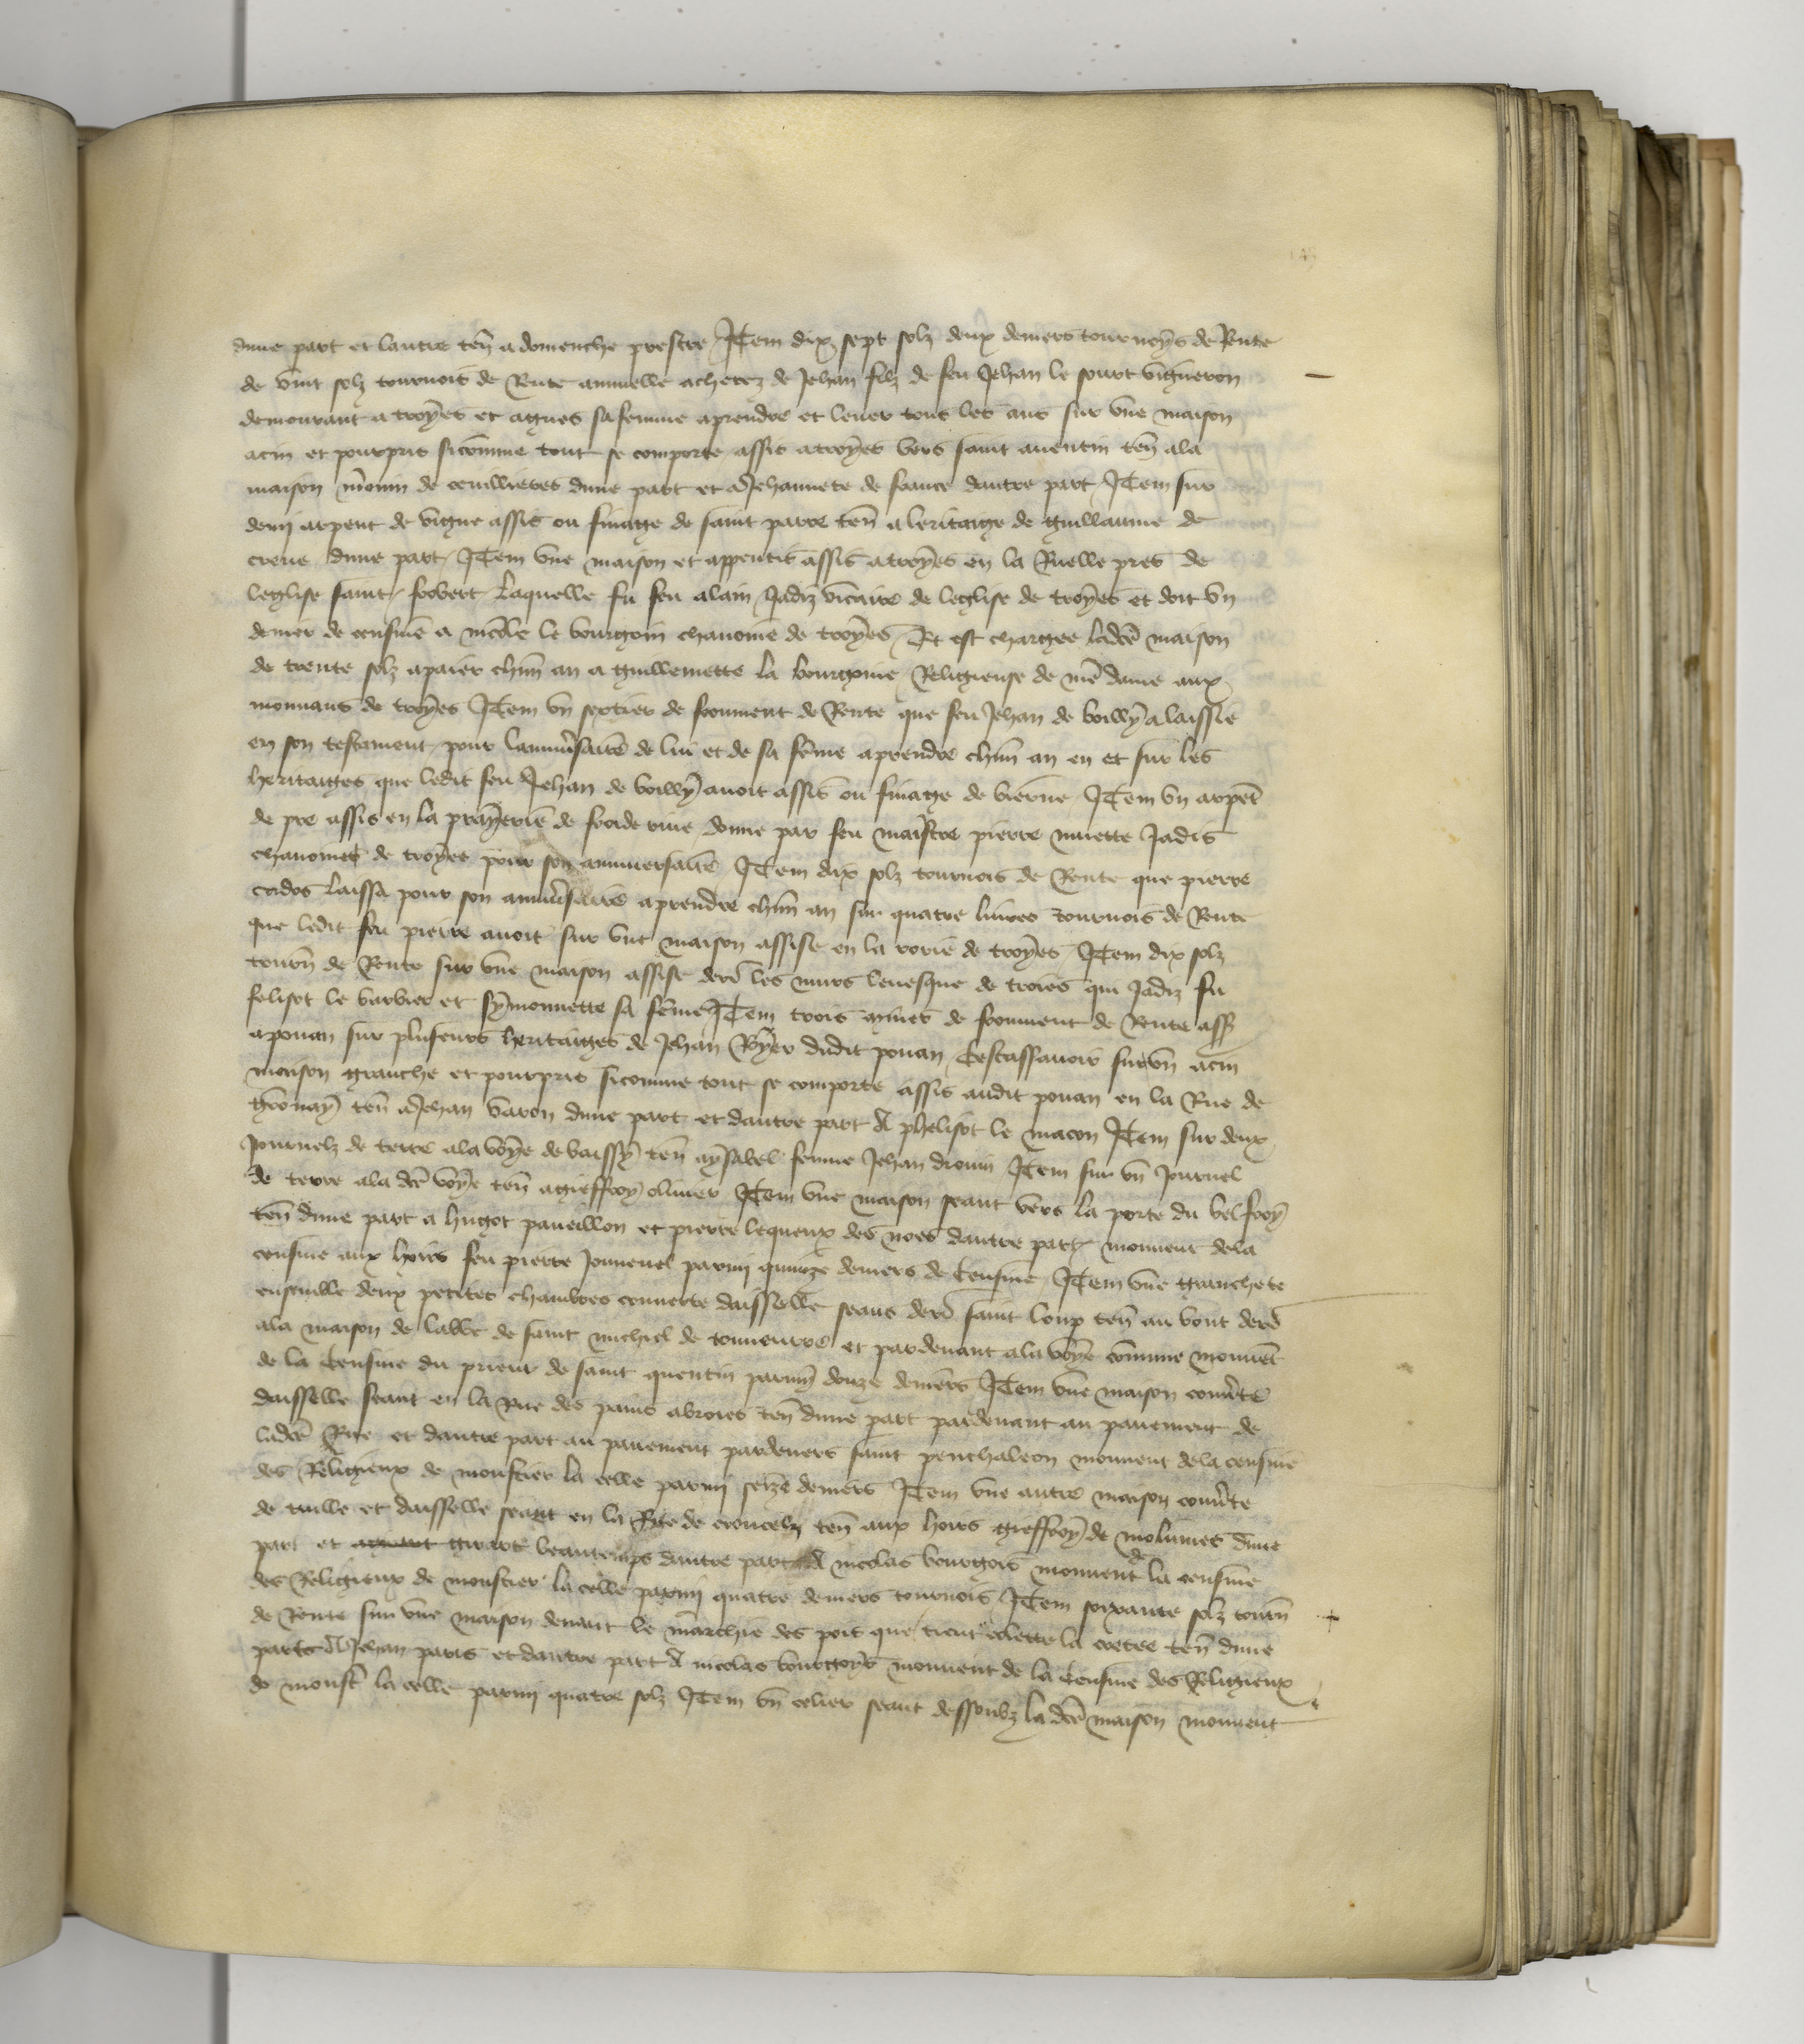 dune part et lautre ten̄ a domenche prestre Item dix sept solz deux deniers tournoys de Rente
de vint solz tournois de Rente annuelle achetez de Jehan filz de feu Jehan le sourt vigneron
demourant a troyes et agnes sa femme aprendre et lever tous les ans sur vne maison
acin et pourpris sicomme tout se comporte assis a troyes vers saint auentin ten̄ ala
maison de cuillieres dune part et a Jehannete de france dautre part Item sur
demj arpent de vigne assis ou finage de saint parre ten̄ a leritaige de guillaume de
creue dune part Item vne maison et appentis assis a troyes en la Ruelle pres de
leglise saint frobert laquelle fu feu alain Jadiz vicaire de leglise de troyes et doit vn
denier de censiue a nicole le bourgoin chanoine de troyes Et est chargee ladc̄e maison
de trente solz apaier chūn an a guillemette la bourgoine Religieuse de nr̄e dame aux
nonnans de troyes Item vn sextier de froument de Rente que feu Jehan de boilly a laissie
en son testament pour lanniūsaire de lui et de sa fēme aprendre chūn an en et sur les
heritaiges que ledit feu Jehan de boilly auoit assis ou finage de vierne Item vn arpēt
de pre assis en la prayerie de froide riue donne par feu maistre pierre muette Jadis
chanoine de troyes pour son anniuersaire Item dix solz tournois de Rente que pierre
cados laissa pour son anniūsaire aprendre chūn an sur quatre liures tournois de Rente
que ledit feu pierre auoit sur vne maison assise en la corie de troyes Item dix solz
tourn̄ de Rente sur vne maison assise derr̄ les murs leuesque de troies qui Jadiz fu
felisot le barbier et symonnette sa fēme Item trois mines de froument de Rente ass̄
apouan sur pluseurs heritaiges de Jehan dudit pouan Cestassauoir sur vn acin
maison granche et pourpris sicomme tout se comporte assis audit pouan en la Rue de
ten̄ a Jehan varon dune part et dautre part A phelisot le macon Item sur deux
Journelz de terre ala voye de baissy ten̄ aysabel femme Jehan drouin Item sur vn Journel
de terre ala dc̄e voye ten̄ agieffroy oliuier Item vne maison seant vers la porte du belfroy
ten̄ dune part a hugot paueillon et pierre lequeux des noes dautre part mouuent dela
censiue aux hoirs feu pierre Jouuenel parmj quinze deniers de Censiue Item vne granchete
ensemble deux petites chambres couuerte daisselle seans derr̄ saint loup ten̄ au bout derr̄
ala maison de labbe de saint michiel de tonneurre et pardeuant ala voye commune mouuēt
de la Censiue du prieur de saint quentin parmy douze deniers Item vne maison couūte
daisselle seant en la Rue des pains abroies ten̄ dune part pardeuant au pauement de
ladc̄e Rue et dautre part au pauement pardeuers saint penthaleon mouuent dela censiue
des Religieux de moustier la celle parmj seize deniers Item vne autre maison couūte
de tuille et daisselle seant en la Rue de croncelz ten̄ aux hoirs gieffroy de molumes dune
part et girart beautemps dautre part A nicolas bourgois mouuent de la censiue
des Religieux de moustier la celle parmj quatre deniers tournois Item soixante solz tourn̄
de Rente sur vne maison deuant le marchie des pois que tient colette la ten̄ dune
part A Jehan paris et dautre part A nicolas bourgoys mouuent de la Censiue des Religieux
de moust̄ la celle parmj quatre solz Item vn celier seant dessoubz la dc̄e maison mouuent